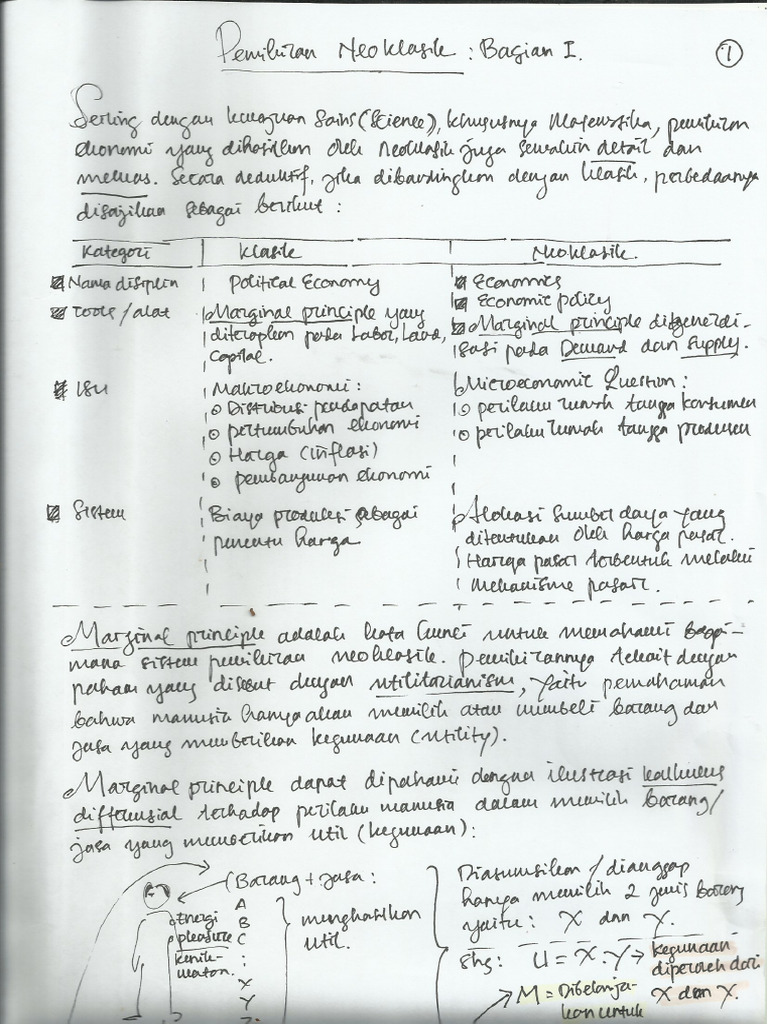 Pemikiran Neoklasik : Bagian I.
1
Seiring dengan kemajuan Sains (Science), khususnya Matematika, pemikiran
ekonomi yang dihasilkan oleh Neoklasik juga semakin detail dan
meluas. Secara deduktif, jika dibandingkan dengan klasik, perbedaannya
disajikan sebagai berikut :
Kategori Klasik Neoklasik.
Nama disiplin Political Economy Economics
Economic policy
Tools/alat Marginal principle yang Marginal principle digenerali-
diterapkan pada Labor, Land, sasi pada Demand dan Supply.
Capital.
Isu Makroekonomi : Microeconomic Question :
Distribusi pendapatan perilaku rumah tangga konsumen
pertumbuhan ekonomi perilaku rumah tangga produsen
Harga (inflasi)
pembangunan ekonomi
Sistem Biaya produksi sebagai Alokasi sumber daya yang
penentu harga ditentukan oleh harga pasar.
Harga pasar terbentuk melalui
mekanisme pasar.
Marginal principle adalah kata kunci untuk memahami bagai-
mana sistem pemikiran neoklasik. Pemikirannya terkait dengan
paham yang disebut dengan utilitarianism, yaitu pemahaman
bahwa manusia hanya akan memilih atau membeli barang dan
jasa yang memberikan kegunaan (utility).
Marginal principle dapat dipahami dengan ilustrasi kalkulus
differensial terhadap perilaku manusia dalam memilih barang/
jasa yang memberikan util (kegunaan) :
(Barang + jasa :
A
B
C
:
X
Y
Energi
pleasure
kenik-
matan.
menghasilkan
util.
Diasumsikan / dianggap
hanya memilih 2 jenis barang
yaitu : X dan Y.
Shg : U = X.Y → kegunaan
diperoleh dari
X dan Y.
M = Dibelanja-
kan untuk